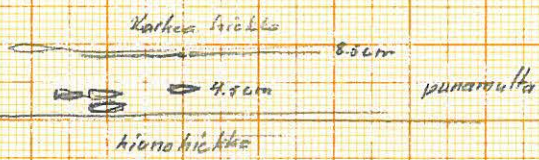 Karkea hiekka
8.5cm
4.5cm
punamulta
hieno hiekka